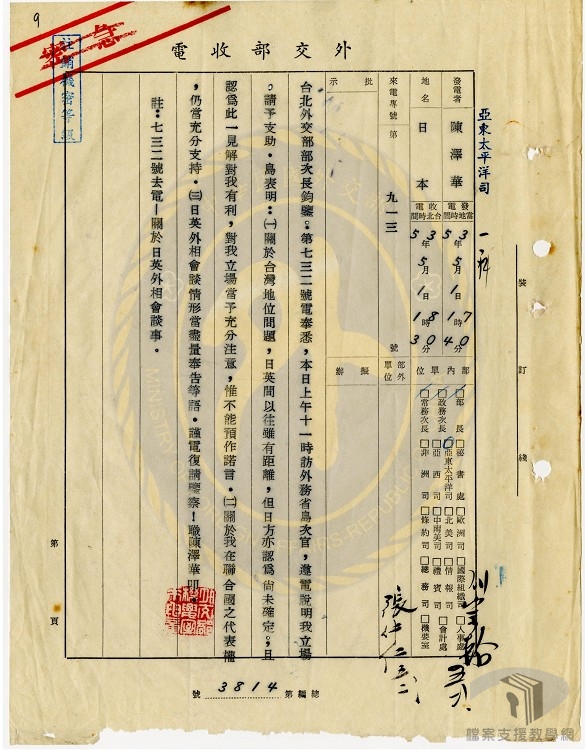 9
急
註銷機密等級
外交部收電
亞東太平洋司
發電者 陳澤華
地名 日本
來電專號 第 九一三 號
批示
發電當地時間 53年5月1日17時40分
收電台北時間 53年5月1日18時30分
部內單位
部外單位
擬辦
□部長 □政務次長 □常務次長
□秘書處 □亞東太平洋司 □亞西司 □非洲司
□歐洲司 □北美司 □中南美司 □條約司
□國際組織司 □情報司 □禮賓司 □總務司
□人事處 □會計處 □機要室
台北外交部部次長鈞鑒。第七三二號電奉悉，本日上午十一時訪外務省島次官，遵電說明我立場
。請予支助。島表明：㈠關於台灣地位問題，日英間以往雖有距離，但日方亦認為尚未確定，且
認為此一見解對我有利，對我立場當予充分注意，惟不能預作諾言。㈡關於我在聯合國之代表權
，仍當充分支持。㈢日英外相會談情形當盡量奉告等語。謹電復請鑒察！職陳澤華叩
註：七三二號去電—關於日英外相會談事。
裝
訂
線
第 頁
總編第 3814 號
檔案支援教學網